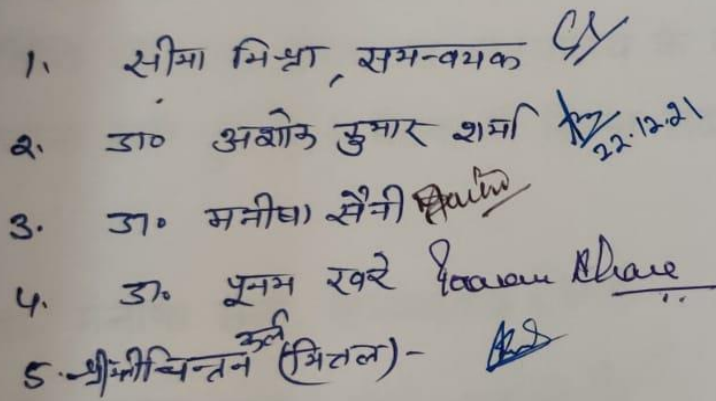 1. सीमा मिश्रा, समन्वयक
2. डा० अशोक कुमार शर्मा 22.12.21
3. डा० मनीषा सैनी
4. डा० पूनम खरे Poonam Khare
5. (मित्तल)-